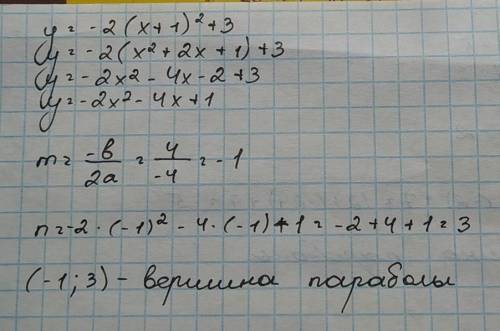 y = -2(x+1)²+3
y = -2(x²+2x+1)+3
y = -2x²-4x-2+3
y = -2x²-4x+1
m = -b/2a = 4/-4 = -1
n = -2·(-1)²-4·(-1)+1 = -2+4+1 = 3
(-1;3) - вершина параболы